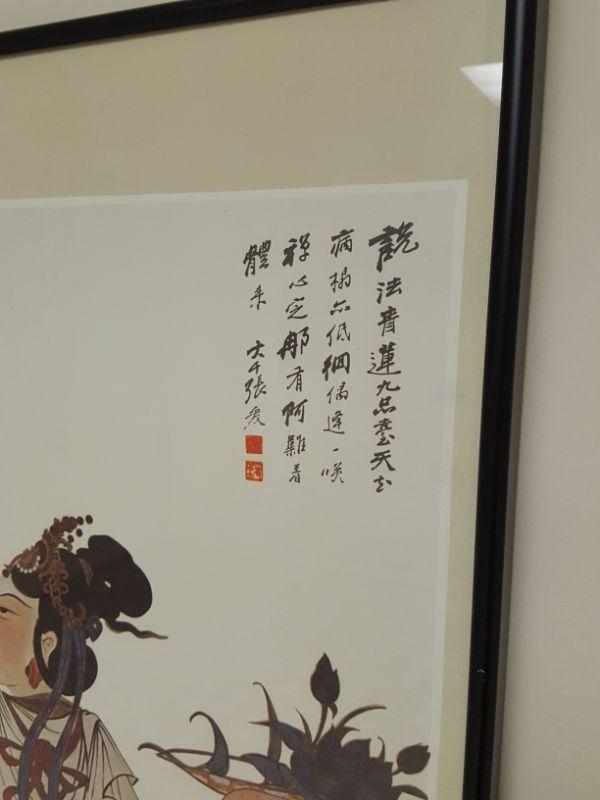 說法青蓮九品臺天
病榻亦低徊偶逢一笑
禪心定那有阿難着
體來 大千張爰